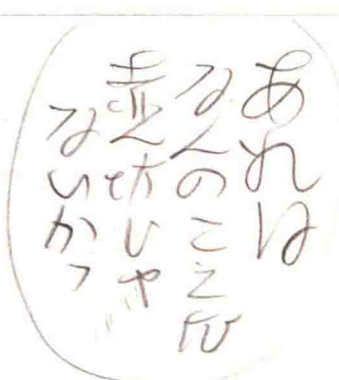 あれは
なんのこえだ
赤ん坊じゃ
ないかっ